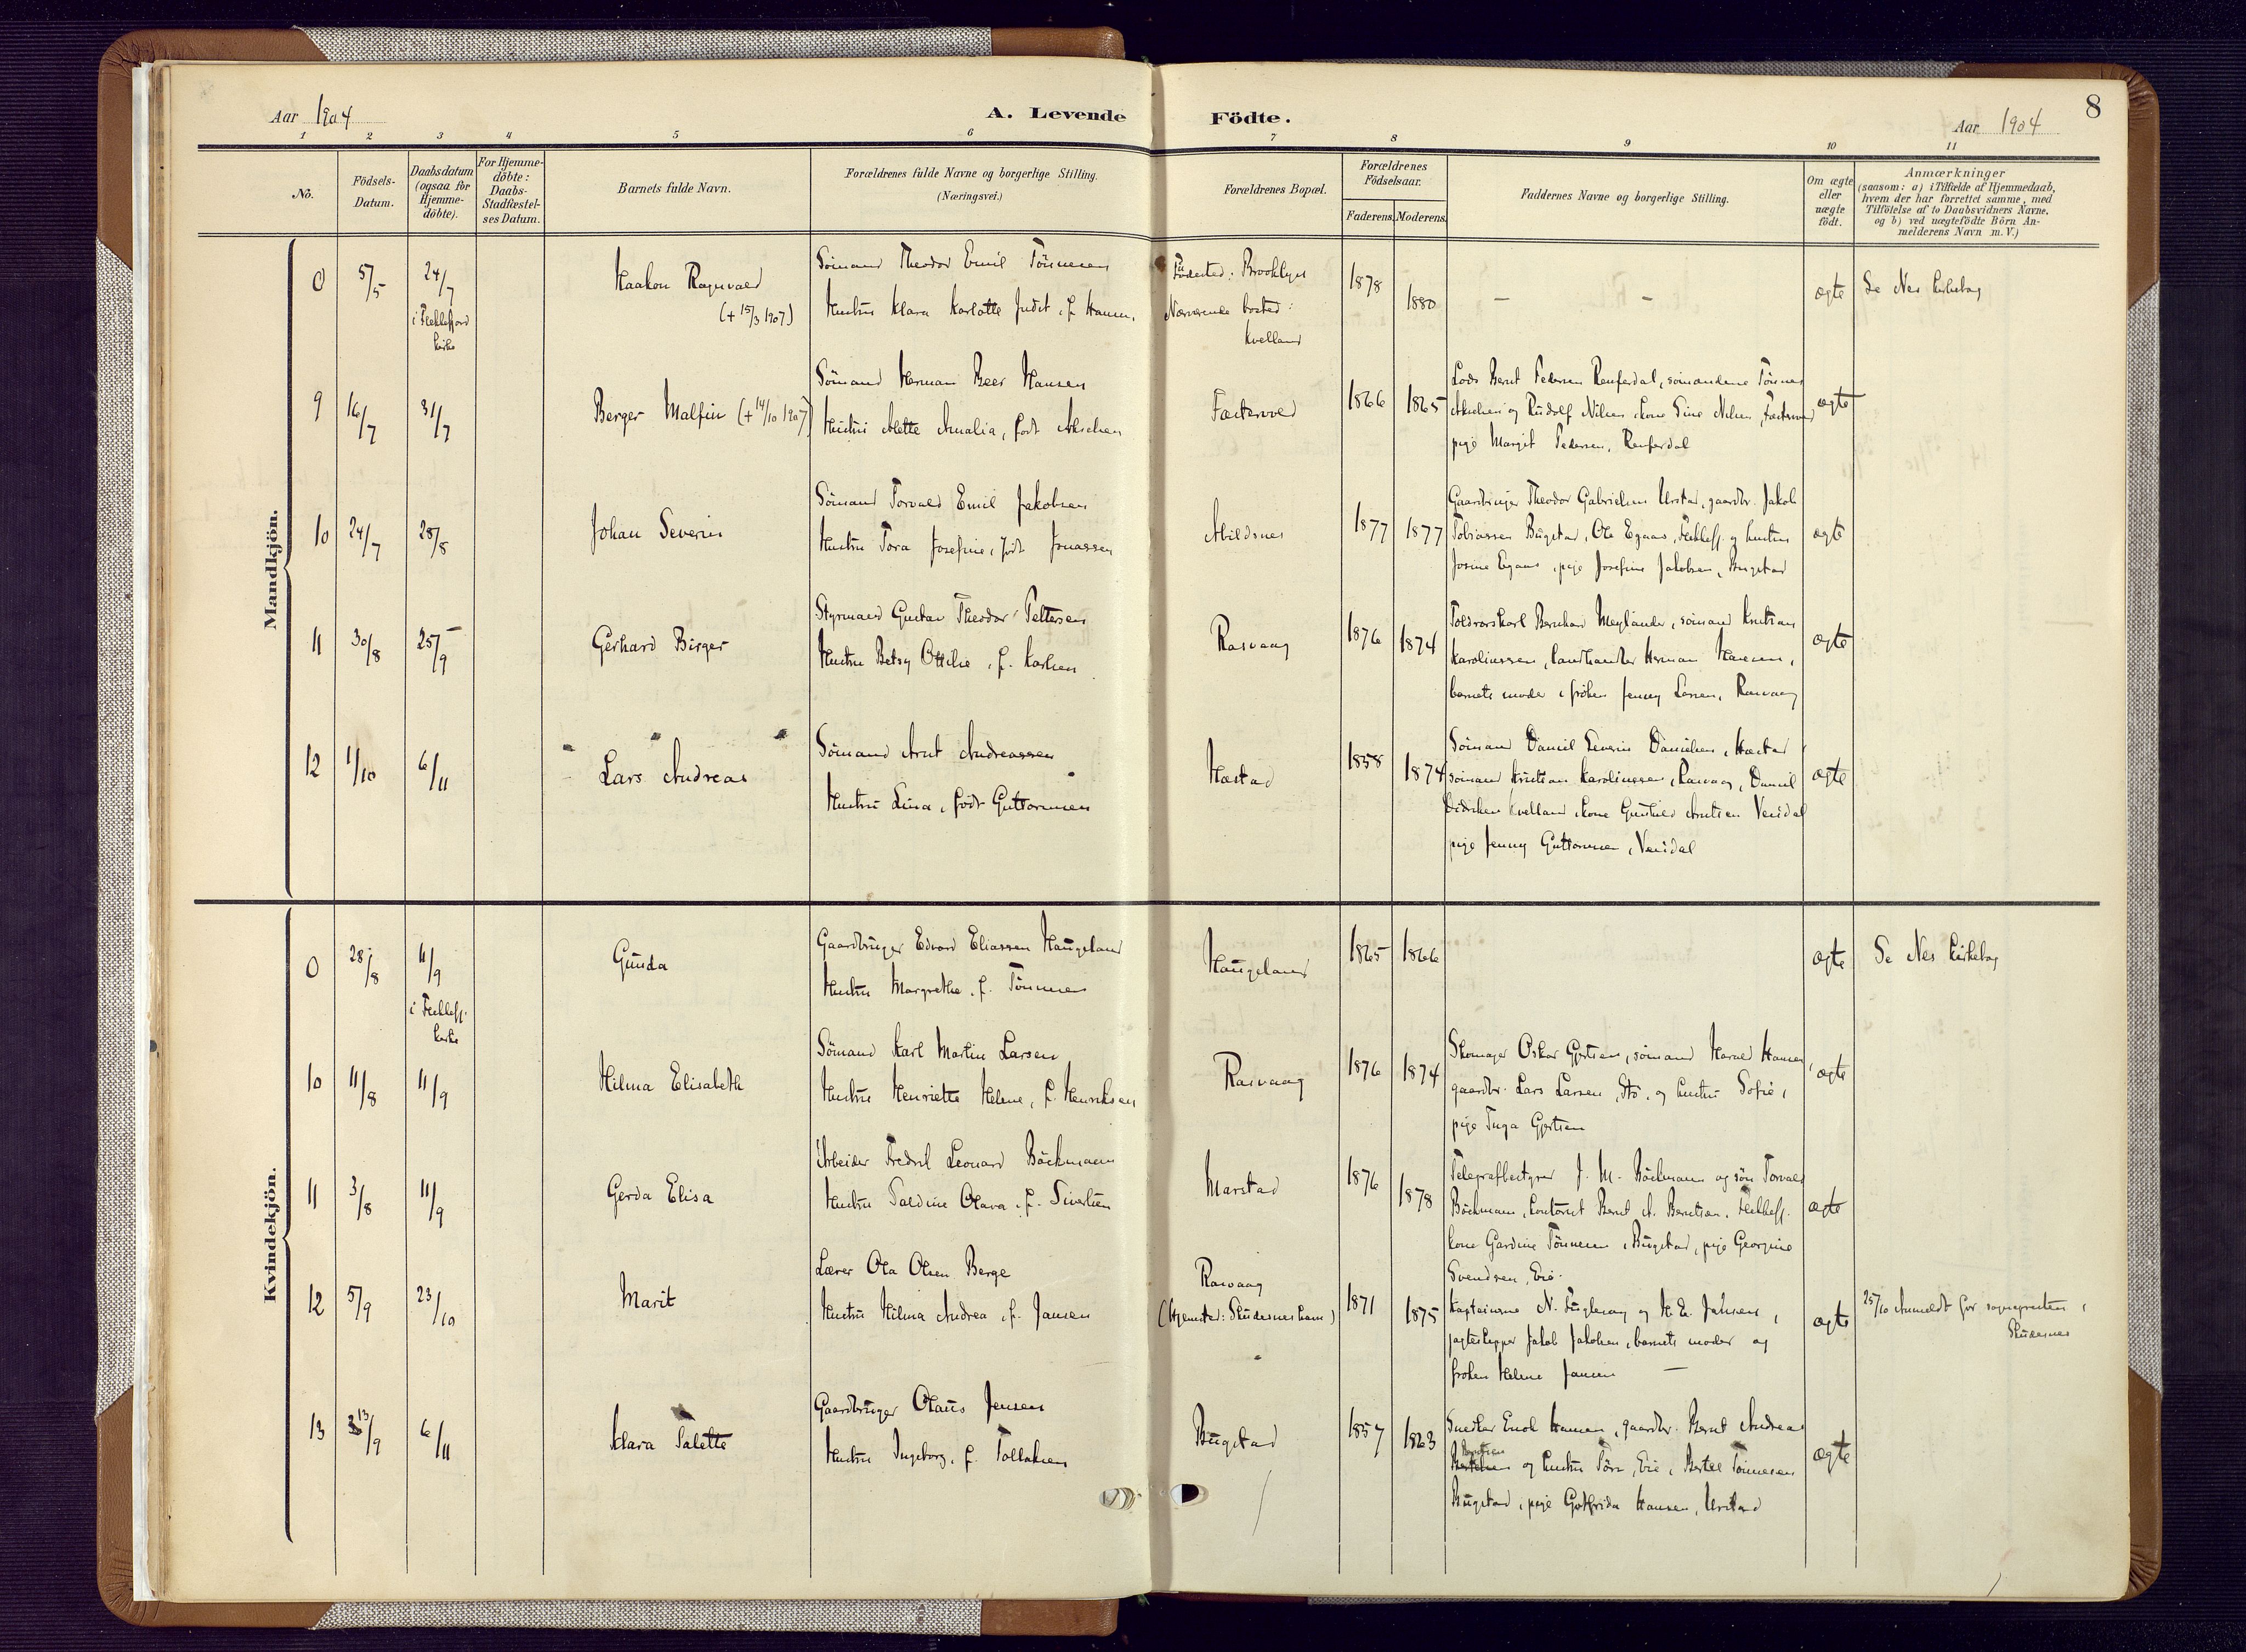 8
Aar 1904
A. Levende Födte.
Aar 1904
1 2 3 4 5 6 7 8 9 10 11
No.
Födsels-
Datum.
Daabsdatum
(ogsaa for
Hjemme-
döbte).
For Hjemme-
döbte:
Daabs-
Stadfæstel-
ses Datum.
Barnets fulde Navn.
Forældrenes fulde Navne og borgerlige Stilling.
(Næringsvei.)
Forældrenes Bopæl.
Forældrenes
Födselsaar.
Faderens. Moderens.
Faddernes Navne og borgerlige Stilling.
Om ægte
eller
uægte
födt.
Anmærkninger
(saasom: a) i Tilfælde af Hjemmedaab,
hvem der har forrettet samme, med
Tilföielse af to Daabsvidners Navne,
og b) ved uægtefödte Börn An-
melderens Navn m. V.)
Mandkjön.
0 5/5 24/7
i Flekkefjord
kirke
Haakon Ragnvald
(+ 15/3 1907)
Sömand Theodor Emil Tönnesen
Hustru Klara Karlotte Judit, f. Hansen,
Födested: Brooklyn
Nærværende bosted:
Kvelland
1878 1880
— —
ægte
Se Nes kirkebog
9 16/7 31/7
Berger Malfin (+ 14/10 1907)
Sömand Herman Beer Hansen
Hustru Alette Amalia, född Akselsen
1866 1865
Lods Bernt Pedersen Renferdal, sömændene Tönnes
Akselsen og Rudolf Nilsen, kone Sine Nilsen
pige Margit Pedersen, Renferdal
ægte
10 24/7 28/8
Johan Severin
Sömand Torvald Emil Jakobsen
Hustru Tora Josefine, född Jonassen
Abildsnes
1877 1877
Gaardbruger Theodor Gabrielsen Urstad, gaardbr. Jakob
Tobiassen Bugstad, Ole Egaas, Flekkefj. og hustru
Josine Egaas, pige Josefine Jakobsen, Bugstad
ægte
11 30/8 25/9
Gerhard Birger
Styrmand Gustav Theodor Pettersen
Hustru Betsy Ottilie, f. Karlsen
Rasvaag
1876 1874
Toldrorskarl Bernhard Meylænder, sömand Kristian
Karolinssen, landhandler Herman Hansen,
barnets moder, fröken Jenny Larsen, Rasvaag
ægte
12 1/10 6/11
Lars Andreas
Sömand Arnt Andreassen
Hustru Lina, född Guttormsen
Hæstad
1858 1874
Sömand Daniel Severin Danielsen, Hæstad,
sömand Kristian Karolinssen, Rasvaag, Daniel
Didriksen Kvelland, kone Gunhild Arntsen Veisdal
pige Jenny Guttormsen, Veisdal
ægte
Kvindekjön.
0 28/8 11/9
i Flekkefj.
kirke
Gunda
Gaardbruger Edvard Eliassen Haugeland
Hustru Margrethe, f. Tönnesen
Haugeland
1865 1866
ægte
Se Nes kirkebog
10 11/8 11/9
Hilma Elisabeth
Sömand Karl Martin Larsen
Hustru Henriette Helene, f. Henriksen
Rasvaag
1876 1874
Skomager Oskar Gjertsen, sömand Harald Hansen,
gaardbr. Lars Larsen, Stö, og hustru Sofie,
pige Inga Gjertsen
ægte
11 3/8 11/9
Gerda Elisa
Arbeider Fredrik Leonard Böckmann
Hustru Saldine Olava, f. Sivertsen
Marstad
1876 1878
Telegrafbestyrer J. M. Böckmann og sön Torvald
Böckmann, kontorist Bernt A. Berntsen, Flekkefj.
kone Gardine Tönnesen, Bugstad, pige Georgine
Svendsen, Eie.
ægte
12 5/9 23/10
Marit
Lærer Ola Olsen Berge
Hustru Hilma Andrea, f. Jansen
Rasvaag
(Hjemsted: Skudesneshavn)
1871 1875
Kapteinerne N. Fuglevaag og H. E. Jansen,
jagteskipper Jakob Jakobsen, barnets moder og
fröken Helene Jansen —
ægte
25/10 Anmeldt for sognepresten i
Skudesnes
13 13/9 6/11
Klara Salette
Gaardbruger Olaus Jensen
Hustru Ingeborg, f. Tollaksen
Bugstad
1857 1863
Snedker Enok Hansen, gaardbr. Bernt Andreas
Berntsen
og hustru Eie, Bertel Tönnesen
Bugstad, pige Gotfrida Hansen, Urstad
ægte